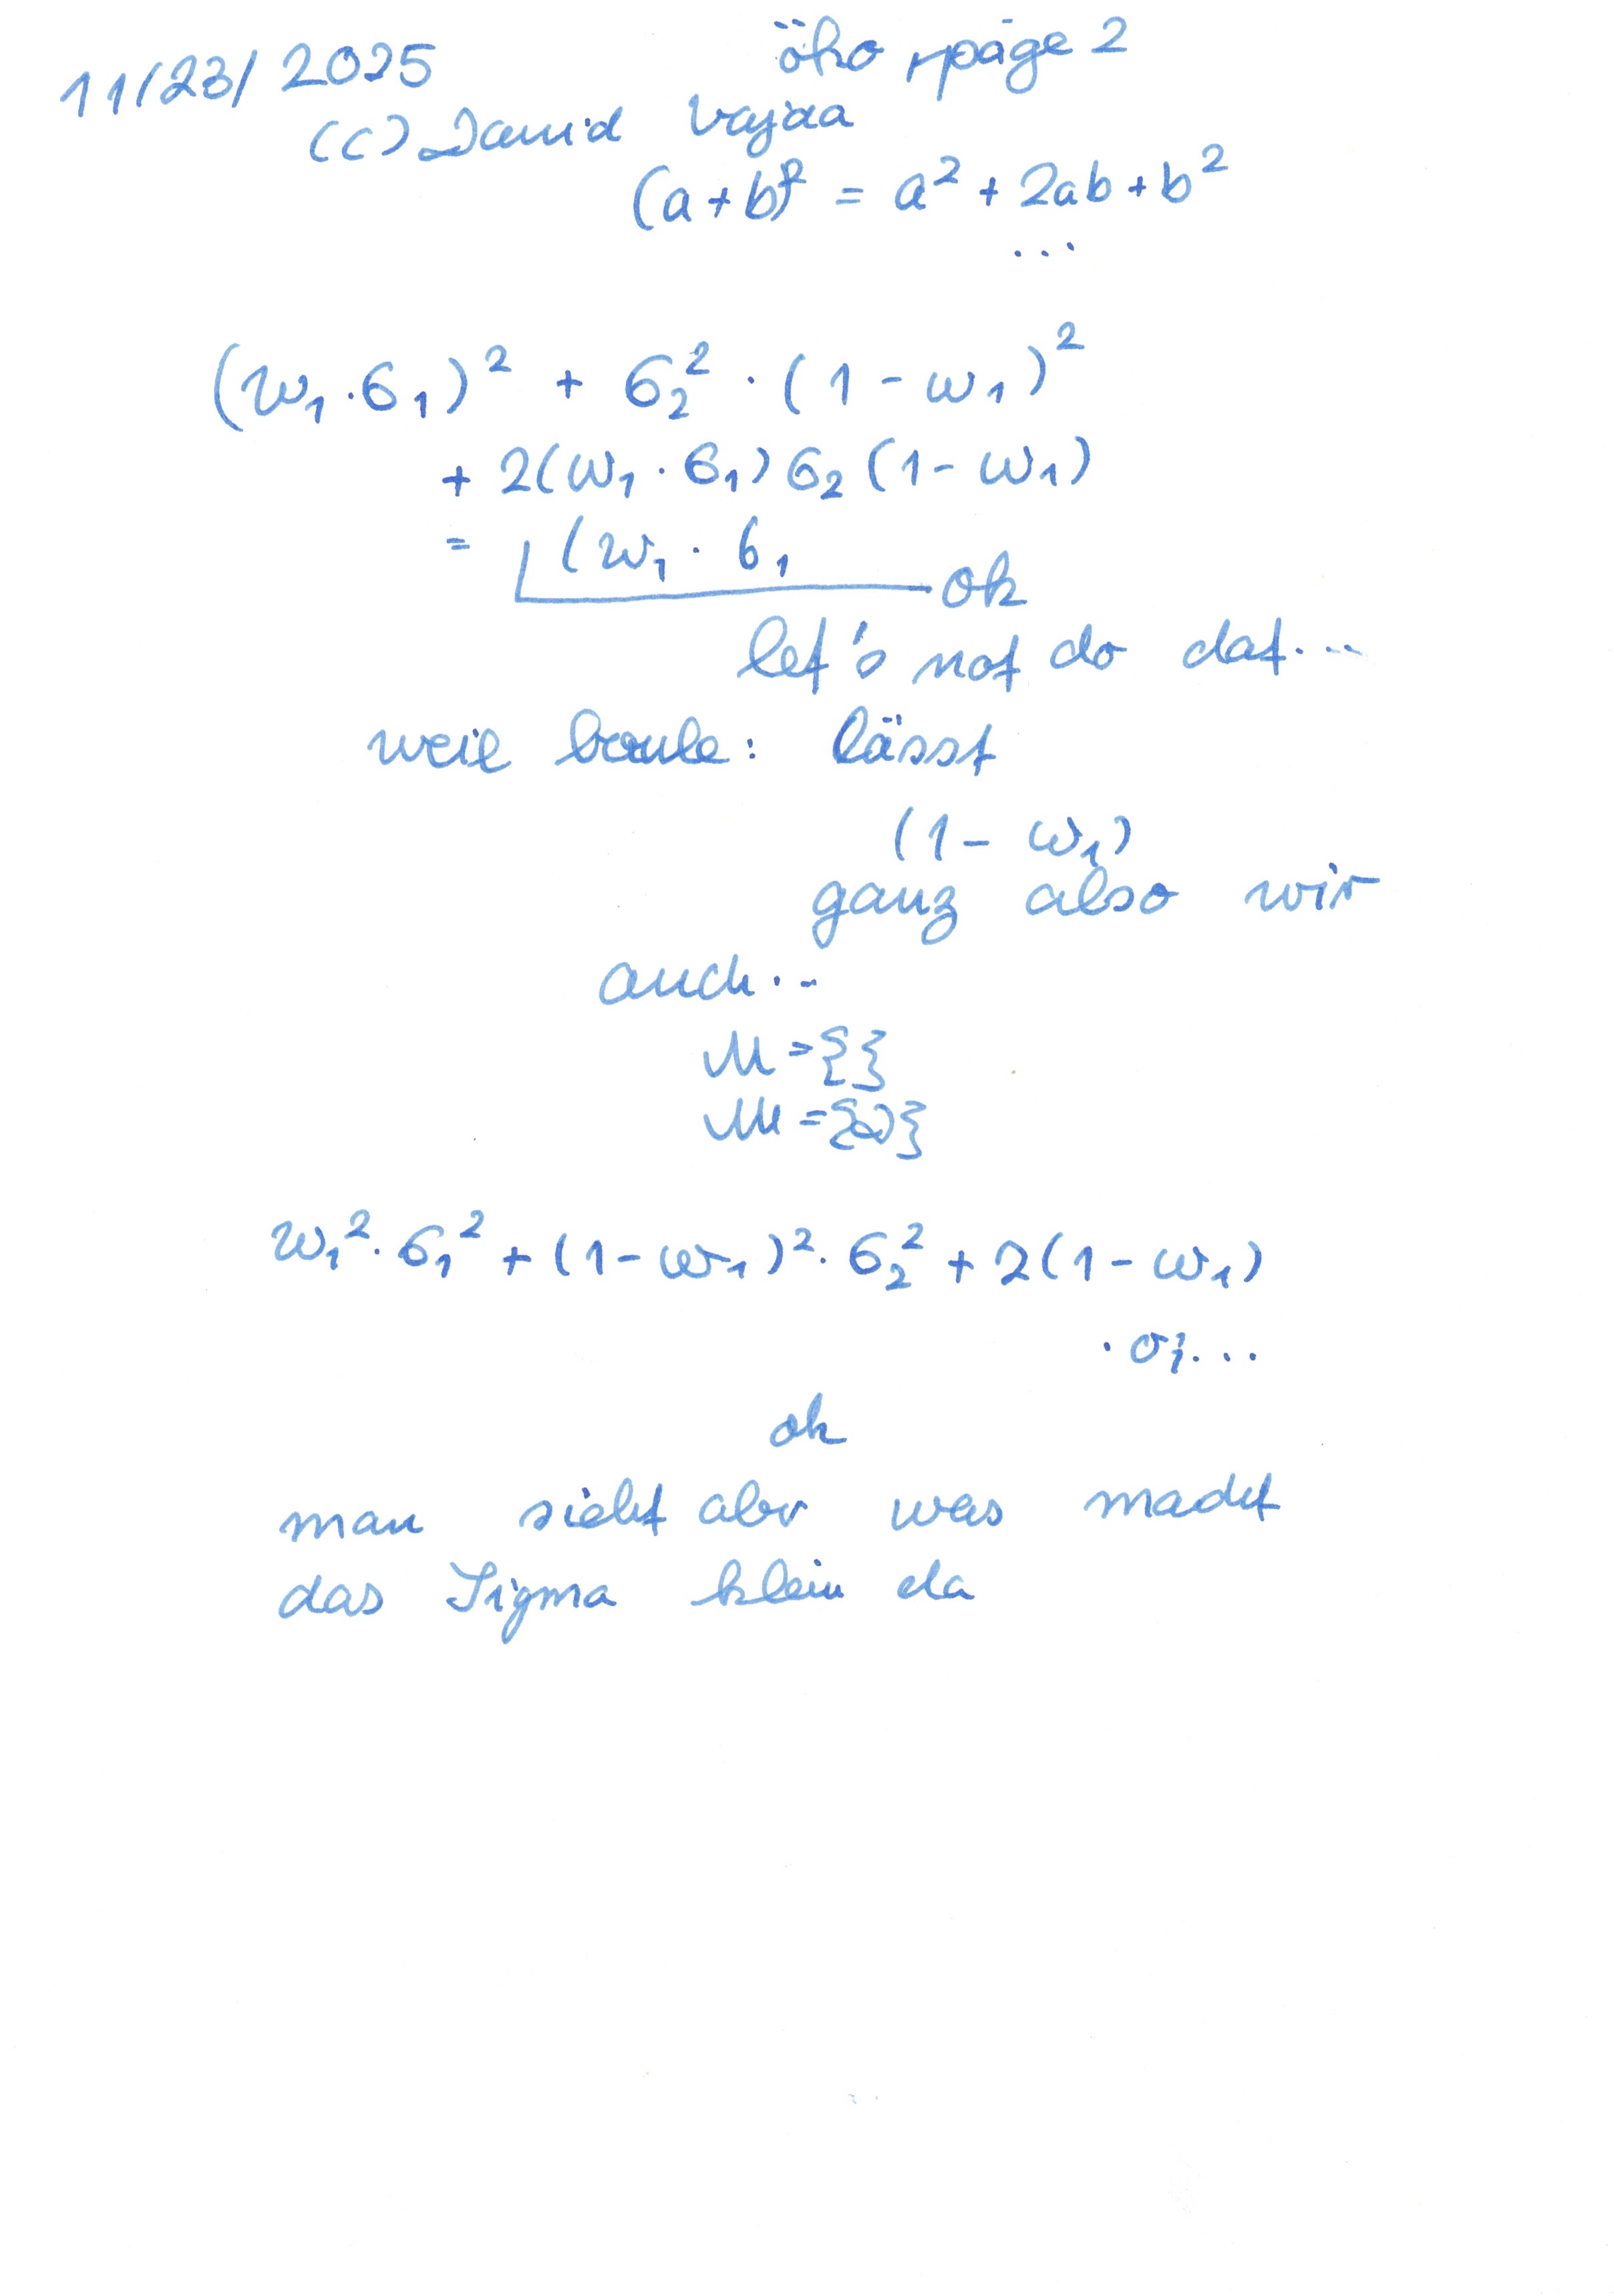 11/23/2025 öko page 2
(c) David Vajda
(a+b)² = a² + 2ab + b²
...
(w₁·σ₁)² + σ₂²·(1-w₁)²
+ 2(w₁·σ₁)σ₂(1-w₁)
= (w₁·σ₁
ok
let's not do dat...
weil : lässt
(1-w₁)
ganz also wir
auch...
M={}
w₁²·σ₁² + (1-w₁)²·σ₂² + 2(1-w₁)
·σ₁...
ok
man sieht abr was macht
das Sigma klein da